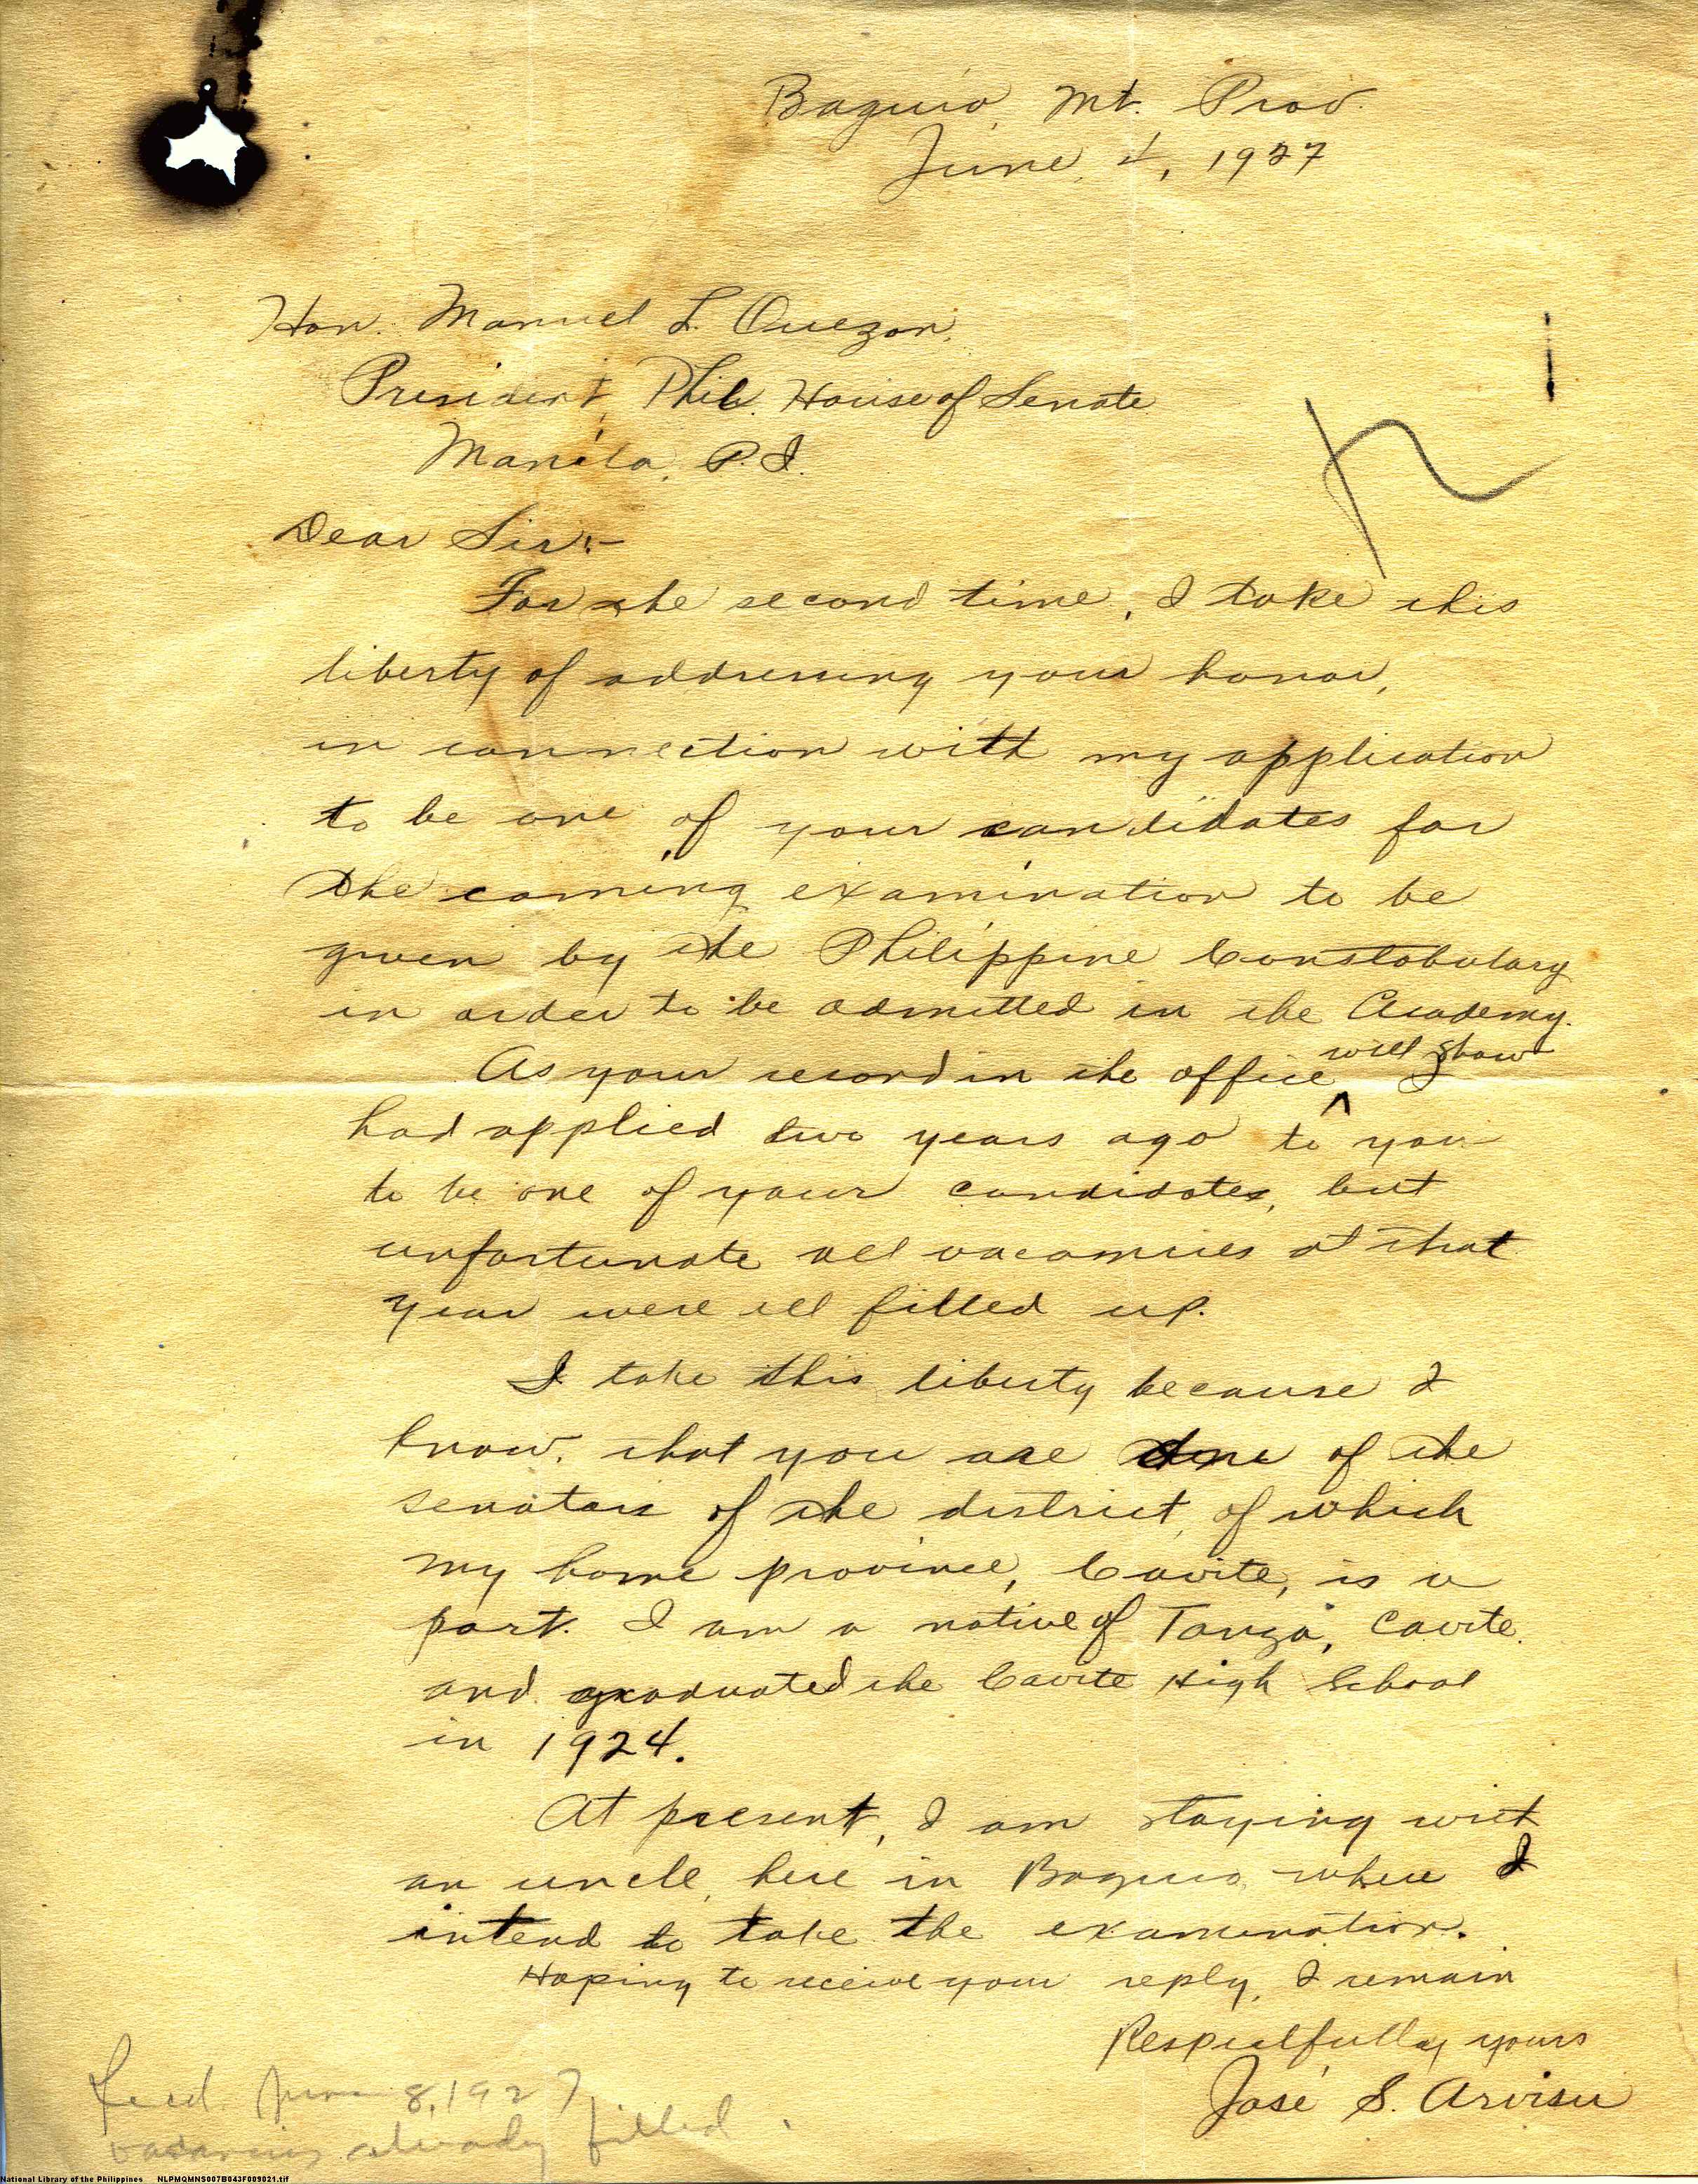 Baguio, Mt. Prov.
June, 4, 1927
Hon. Manuel L. Quezon,
President, Phil. House of Senate
Manila, P.I.
Dear Sir:-
For the second time, I take this
liberty of addressing your honor,
in connection with my application
to be one of your candidates for
the coming examination to be
given by the Philippine Constabulary
in order to be admitted in the Academy.
As your record in the office ^ will show I
had applied two years ago to you
to be one of your candidates, but
unfortunate all vacancies at that
year were all filled up.
I take this liberty because I
know, that you are one of the
senators of the district, of which
my home province, Cavite, is a
part. I am a native of Tanza, Cavite
and graduated the Cavite High School
in 1924.
At present, I am staying with
an uncle, here in Baguio, where I
intend to take the examination.
Hoping to receive your reply, I remain
Respectfully yours
José S. Arvisu
June 8, 1927
already filled.
National Library of the Philippines NLPMQMNS007B043F009021.tif